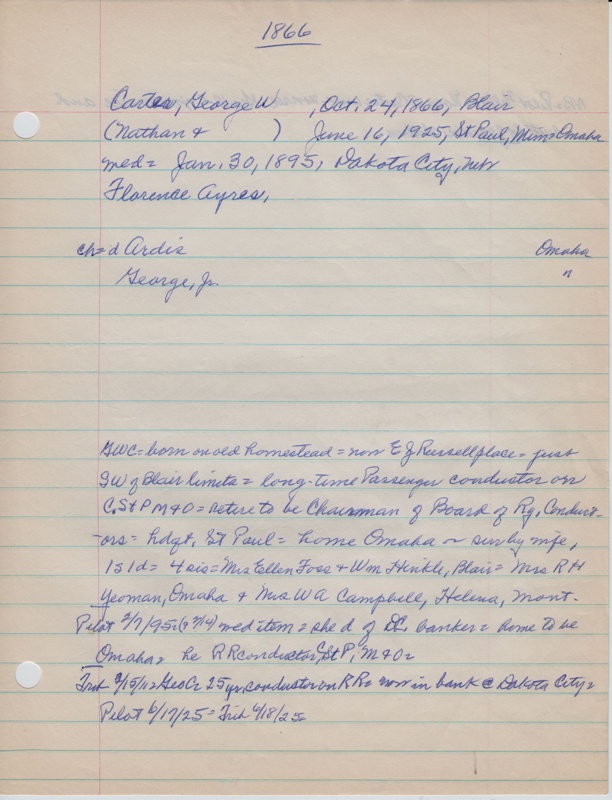 1866
Carter, George W , Oct. 24, 1866, Blair
(Nathan & ) June 16, 1925, St Paul, Minn Omaha
med = Jan. 30, 1895, Dakota City, Neb
Florence Ayres,
ch = d Ardis Omaha
George, Jr. "
GWC = born on old homestead = now E J Russell place = just
SW of Blair limits = long-time Passenger conductor on
C. St P M & O = retire to be Chairman of Board of Ry. Conduct-
-ors = hdqt, St Paul = home Omaha ~ sur by wife,
1 s 1 d = 4 sis = Mrs Ellen Foss & Wm Hinkle, Blair = Mrs R H
Yeoman, Omaha & Mrs W A Campbell, Helena, Mont.
Pilot 2/7/95 med item = she d of DC banker = home to be
Omaha = he R R conductor C, St P, M & O =
Trib 2/15/11 = Geo C = 25 yr. conductor on R R = now in bank @ Dakota City =
Pilot 6/17/25 = Trib 6/18/25